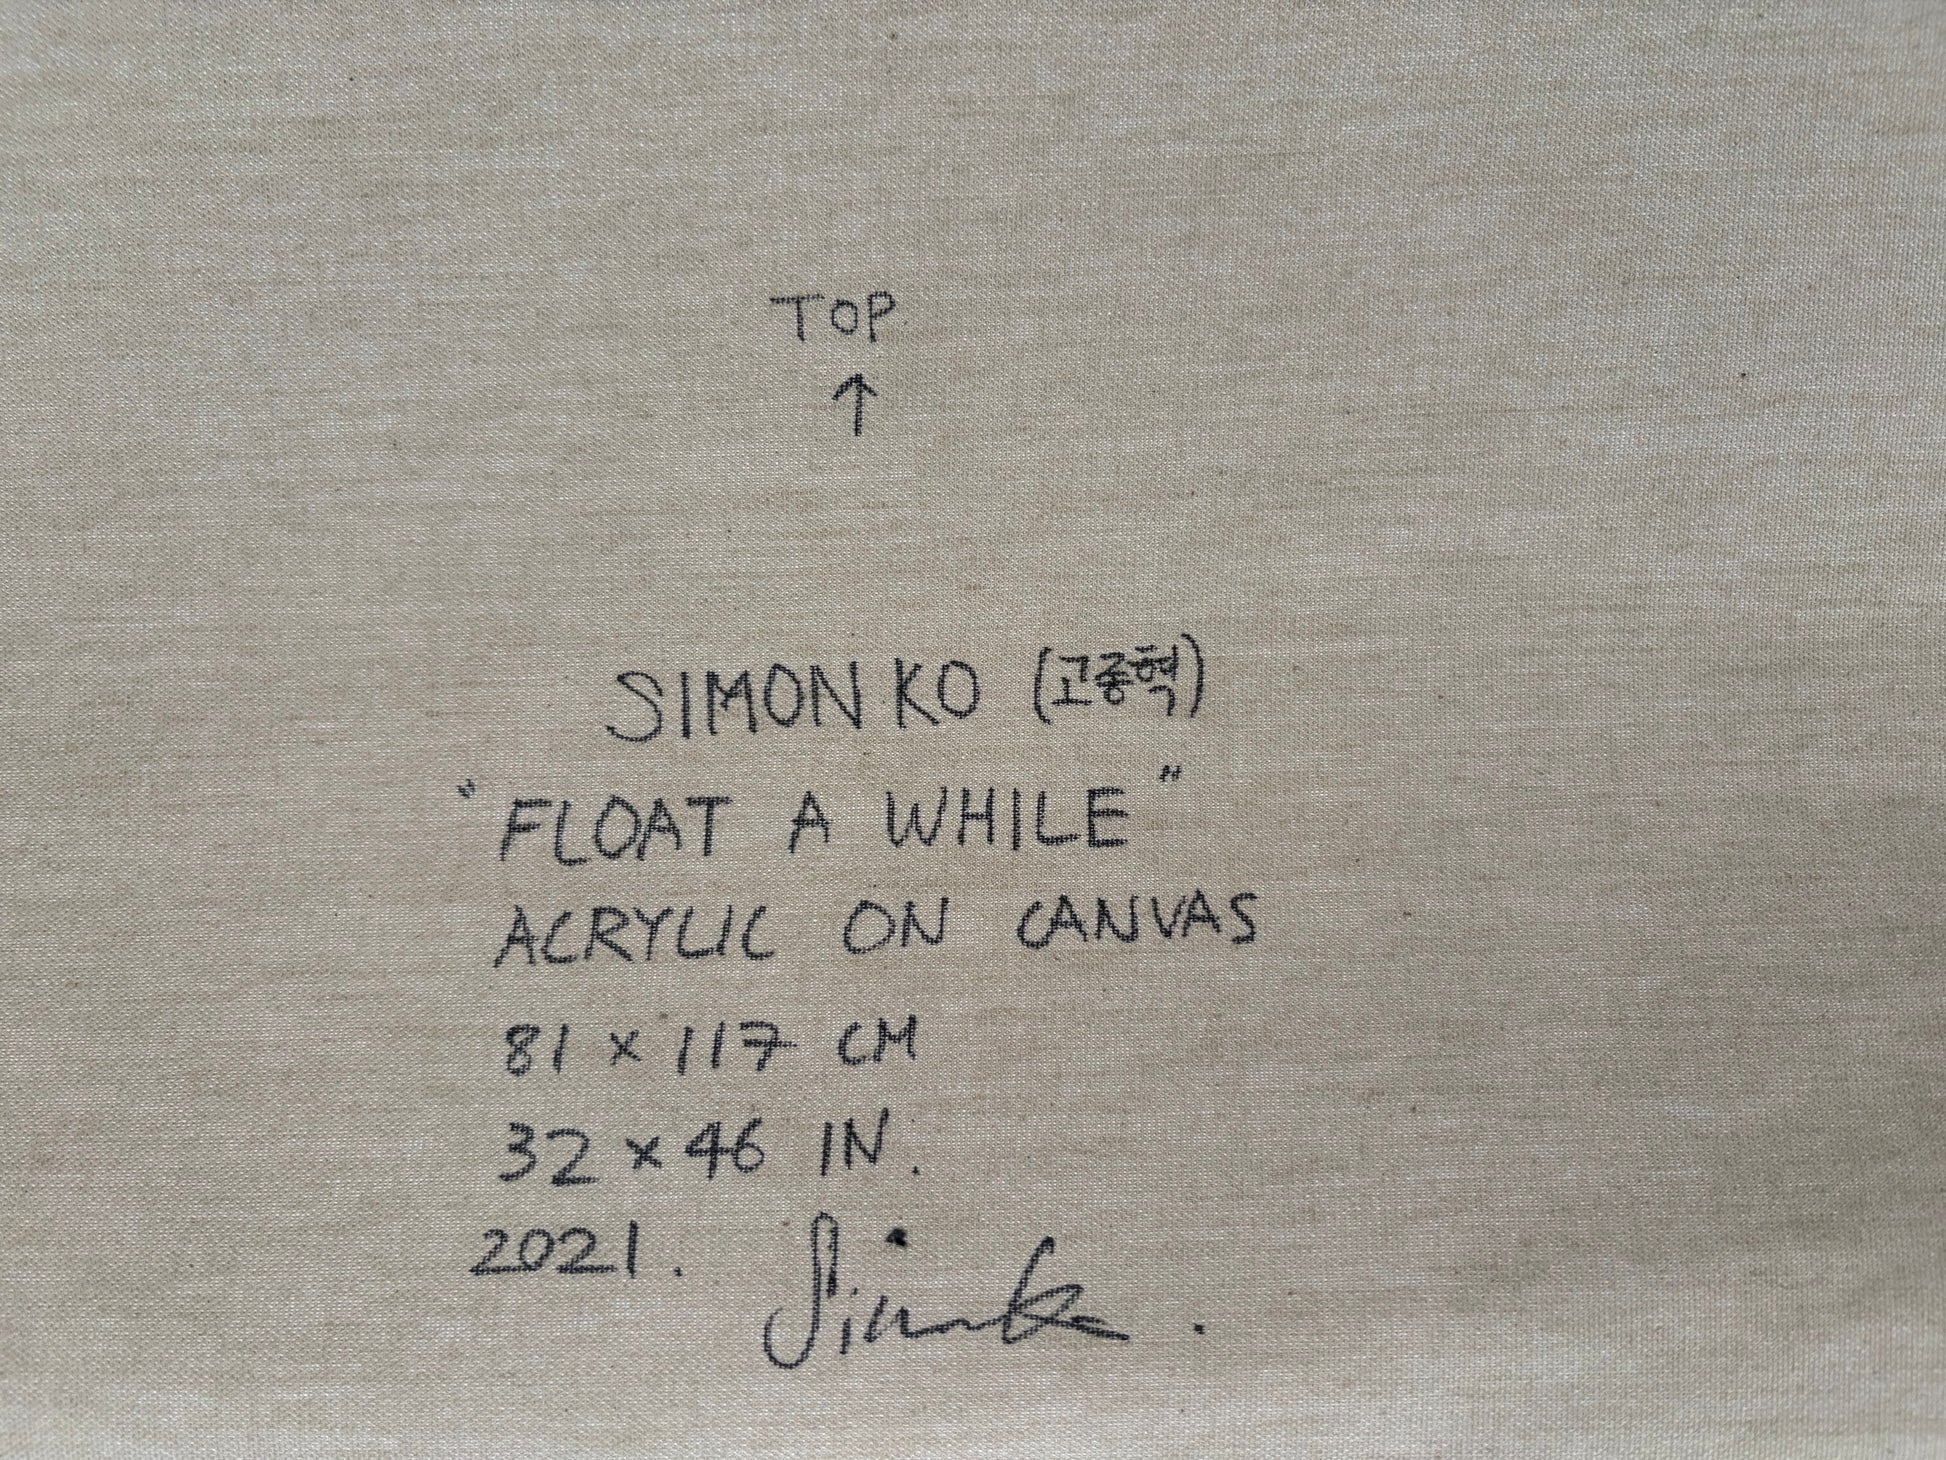 TOP
↑
SIMON KO (고종혁)
"FLOAT A WHILE"
ACRYLIC ON CANVAS
81 x 117 CM
32 x 46 IN.
2021. Simon Ko.